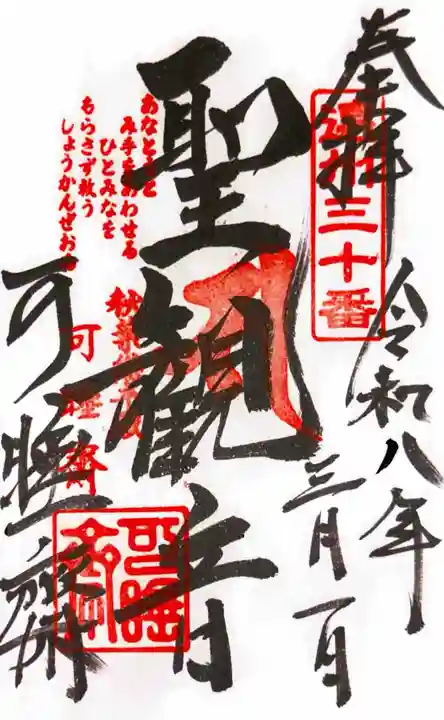 奉拝
三十番
令和八年
三月一日
聖観音
あなとうと
み手をあわせる
ひとみなを
もらさず救う
しょうかんぜおん
可睡齋
可睡斎